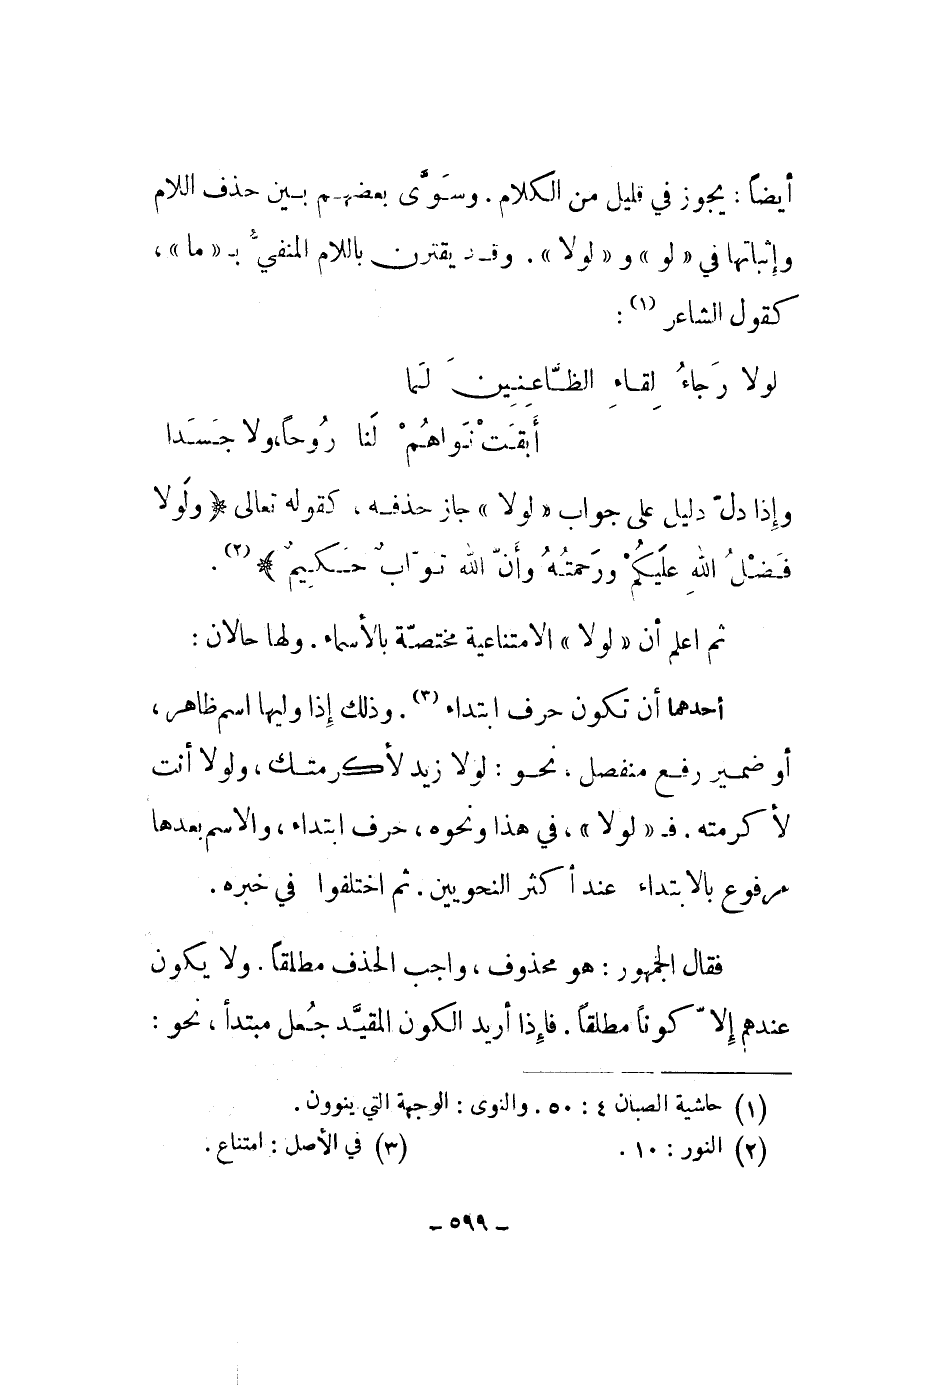 أيضاً : يجوز في قليل من الكلام . وسَوَّى بعضهم بين حذف اللام
وإثباتها في « لو » و « لولا » . وقد يقترن باللام المنفيُّ بـ « ما » ،
كقول الشاعر (١) :
لولا رَجاءُ لِقاءِ الظّاعِنِينَ لَما
أَبقَتْ نَواهُمْ لَنا رُوحاً، ولا جَسَدا
وإذا دلّ دليل على جواب « لولا » جاز حذفه ، كقوله تعالى ﴿ ولَولا
فَضْلُ اللهِ علَيكُمْ ورَحمتُهُ وأَنّ اللهَ توّابٌ حَكِيمٌ ﴾ (٢) .
ثم اعلم أن « لولا » الامتناعية مختصّة بالأسماء . ولها حالان :
أحدهما أن تكون حرف ابتداء (٣) . وذلك إذا وليها اسم ظاهر ،
أو ضمير رفع منفصل ، نحو : لولا زيد لأكرمتك ، ولولا أنت
لأكرمته . فـ « لولا » ، في هذا ونحوه ، حرف ابتداء ، والاسم بعدها
مرفوع بالابتداء عند أكثر النحويين . ثم اختلفوا في خبره .
فقال الجمهور : هو محذوف ، واجب الحذف مطلقاً . ولا يكون
عندهم إلاّ كوناً مطلقاً . فإذا أريد الكون المقيَّد جُعل مبتدأ ، نحو :
(١) حاشية الصبان ٤ : ٥٠ . والنوى : الوجهة التي ينوون .
(٢) النور : ١٠ . (٣) في الأصل : امتناع .
ـ ٥٩٩ ـ